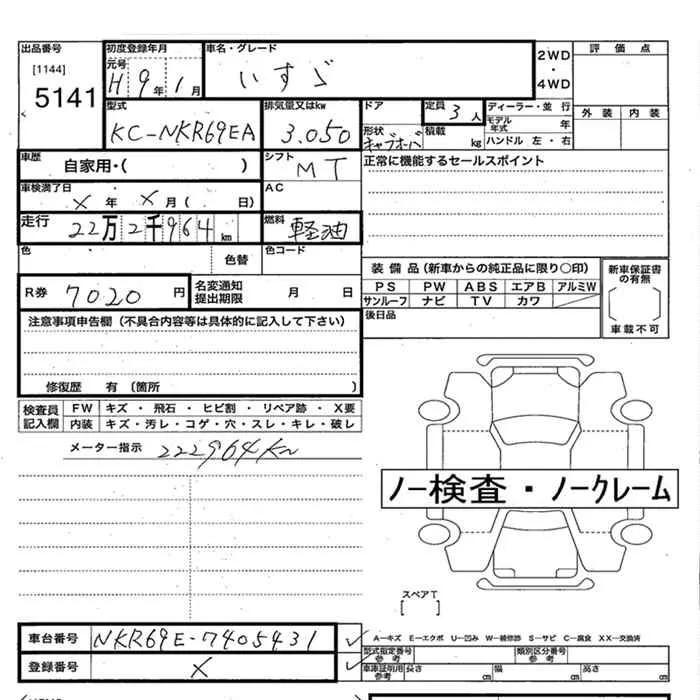 出品番号 初度登録年月 車名・グレード 2WD・4WD 評価点
[1144] 元号
5141 H 9年 1月 いすゞ
型式 排気量又はkw ドア 定員 3人 ディーラー・並行 外装 内装
KC-NKR69EA 3.050 形状 キャブオーバ 積載 kg モデル年式 年
ハンドル 左・右
車歴 自家用・( ) シフト MT 正常に機能するセールスポイント
車検満了日 AC
× 年 × 月( 日)
走行 22万2千964km 燃料 軽油
色 色替 色コード
装備品(新車からの純正品に限り○印) 新車保証書の有無
R券 7020円 名変通知提出期限 月 日 PS PW ABS エアB アルミW
サンルーフ ナビ TV カワ 車載不可
注意事項申告欄(不具合内容等は具体的に記入して下さい) 後日品
修復歴 有〔箇所 〕
検査員記入欄 FW キズ・飛石・ヒビ割・リペア跡・X要
内装 キズ・汚レ・コゲ・穴・スレ・キレ・破レ
メーター指示 222964Km
ノー検査・ノークレーム
スペアT
[ ]
車台番号 NKR69E-7405431 ✓ A−キズ E−エクボ U−凹み W−補修跡 S−サビ C−腐食 XX−交換済
型式指定番号 参考 類別区分番号 参考
登録番号 × ✓ 車庫証明用参考 長さ cm 幅 cm 高さ cm